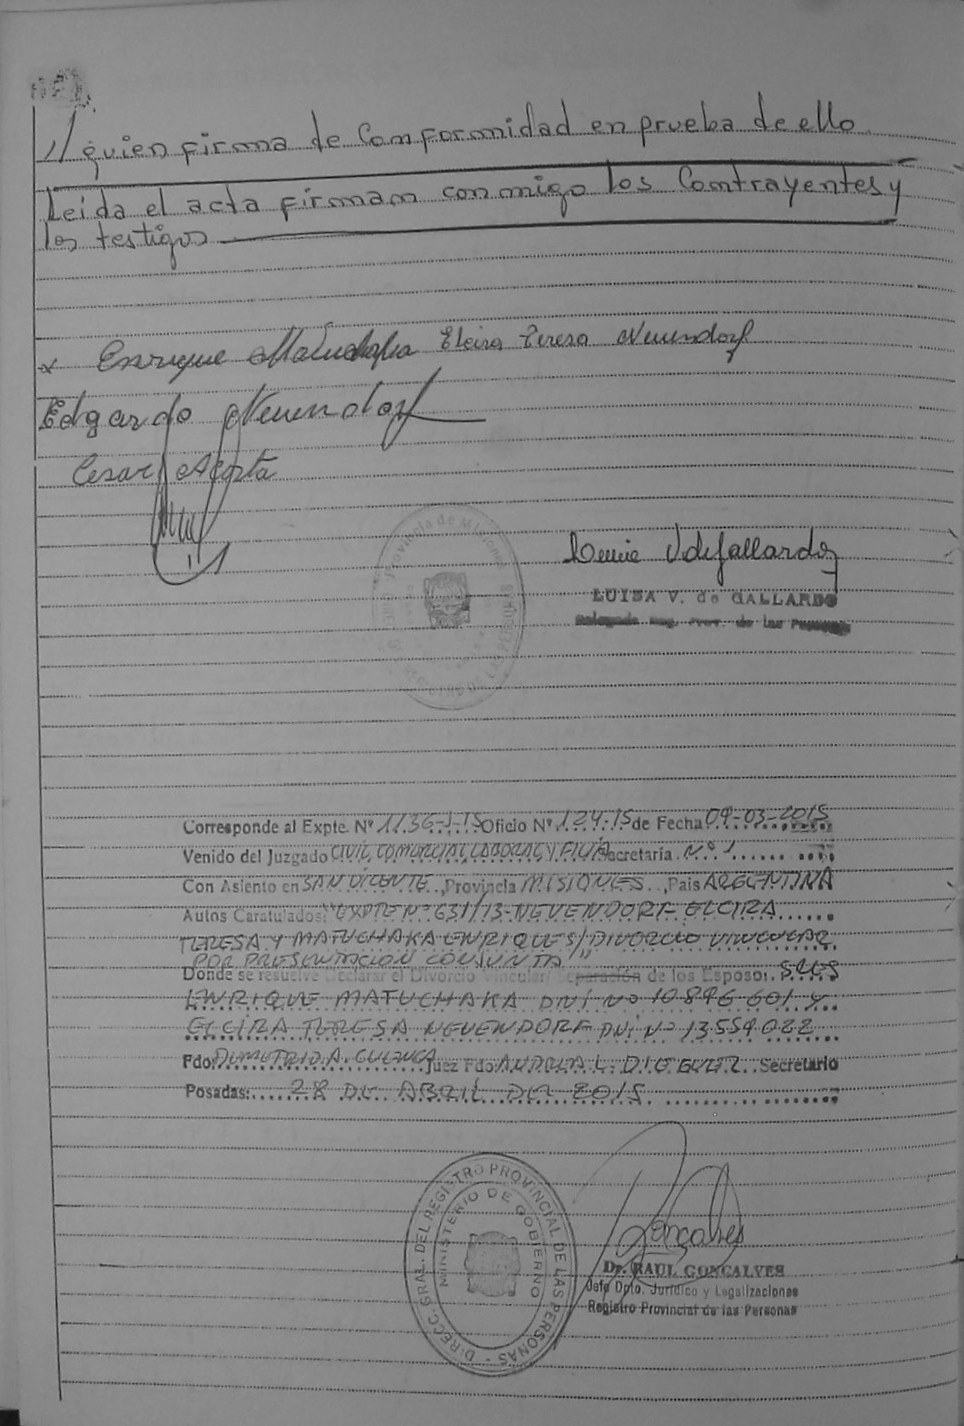 // quien firma de conformidad en prueba de ello
Leida el acta firman conmigo los Contrayentes y
los testigos
x Enrique Matuchaka Elcira Teresa Neuendorf
Edgardo Neuendorf
Cesar Acosta
Provincia de Misiones
LUISA V. de GALLARDO
Delegada Reg. Prov. de las Personas
Corresponde al Expte. Nº 1136-J-15 Oficio Nº 124-15 de Fecha 09-03-2015
Venido del Juzgado CIVIL, COMERCIAL, LABORAL Y FLIA Secretaría Nº 1
Con Asiento en SAN VICENTE, Provincia MISIONES, Pais ARGENTINA
Autos Caratulados: "EXPTE Nº 631/13-NEUENDORF ELCIRA
TERESA Y MATUCHAKA ENRIQUE S/ DIVORCIO VINCULAR
POR PRESENTACION CONJUNTA"
Donde se resuelve declarar el Divorcio Vincular/ Separación de los Esposos: SRES
ENRIQUE MATUCHAKA DNI Nº 10.896.601 y
ELCIRA TERESA NEUENDORF DNI Nº 13.559.022
Fdo: DEMETRIO A. CUENCA Juez Fdo: ANDREA L. DIEGUEZ Secretario
Posadas: 28 DE ABRIL DEL 2015
DIRECC. GRAL. DEL REGISTRO PROVINCIAL DE LAS PERSONAS
MINISTERIO DE GOBIERNO
Goncalves
Dr. RAUL GONCALVES
Jefe Dpto. Jurídico y Legalizaciones
Registro Provincial de las Personas